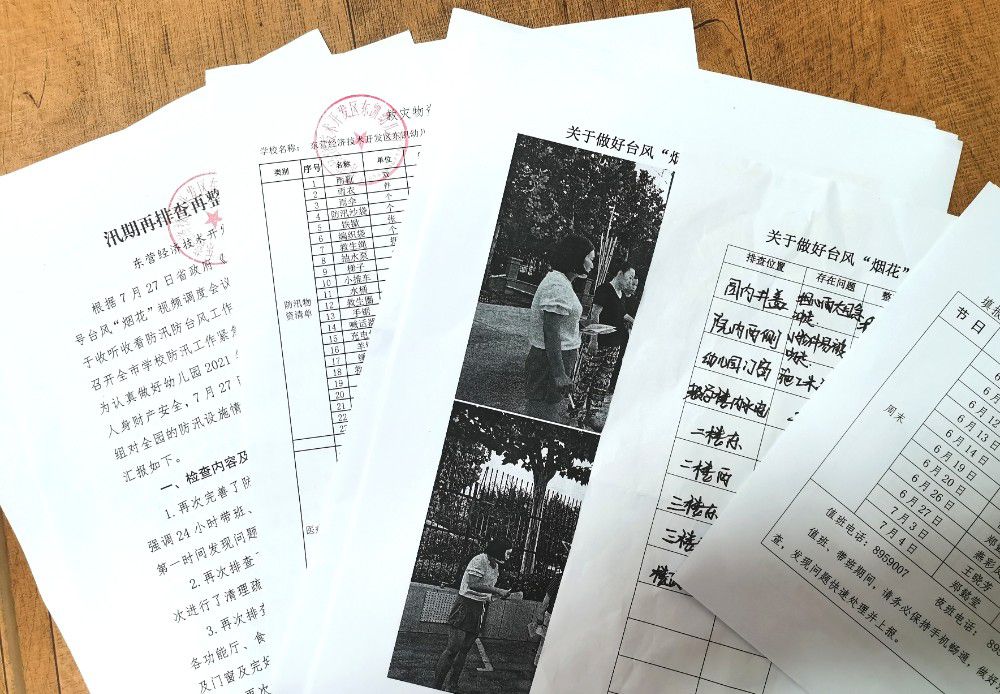 汛期再排查再整
东营经济技术开
根据7月27日省政府
号台风“烟花”视频调度会议
于收听收看防汛防台风工作
召开全市学校防汛工作紧急
为认真做好幼儿园2021
人身财产安全，7月27日
组对全园的防汛设施情
汇报如下。
一、检查内容及
1.再次完善了防
强调24小时带班、
第一时间发现问题
2.再次排查
次进行了清理疏
3.再次排查
各功能厅、食
及门窗及完
再次
救灾物
学校名称：东营经济技术开发区东凯幼
类别 序号 名称 单位
1 雨鞋 双
2 雨衣 件
3 雨伞 个
4 防汛沙袋 个
5 铁锨 张
6 编织袋 个
7 救生绳
8 抽水泵
9 梯子
10 小推车
11 水桶
12 救生圈
13 手锯
14 喊话器
15
16
17
18
19
20
21
22
防汛物
资清单
关于做好台风“烟
关于做好台风“烟花”
排查位置 存在问题 整
园内井盖
院内两侧
幼儿园门窗 施工未
二楼东
二楼西
三楼东
三楼
节日
周末
6月12
6月13
6月14
6月19
6月20
6月26
6月27
7月3日
7月4日
王晓芳
值班电话：8959007
夜班电话：895
值班、带班期间，请务必保持手机畅通，做好
查，发现问题快速处理并上报。